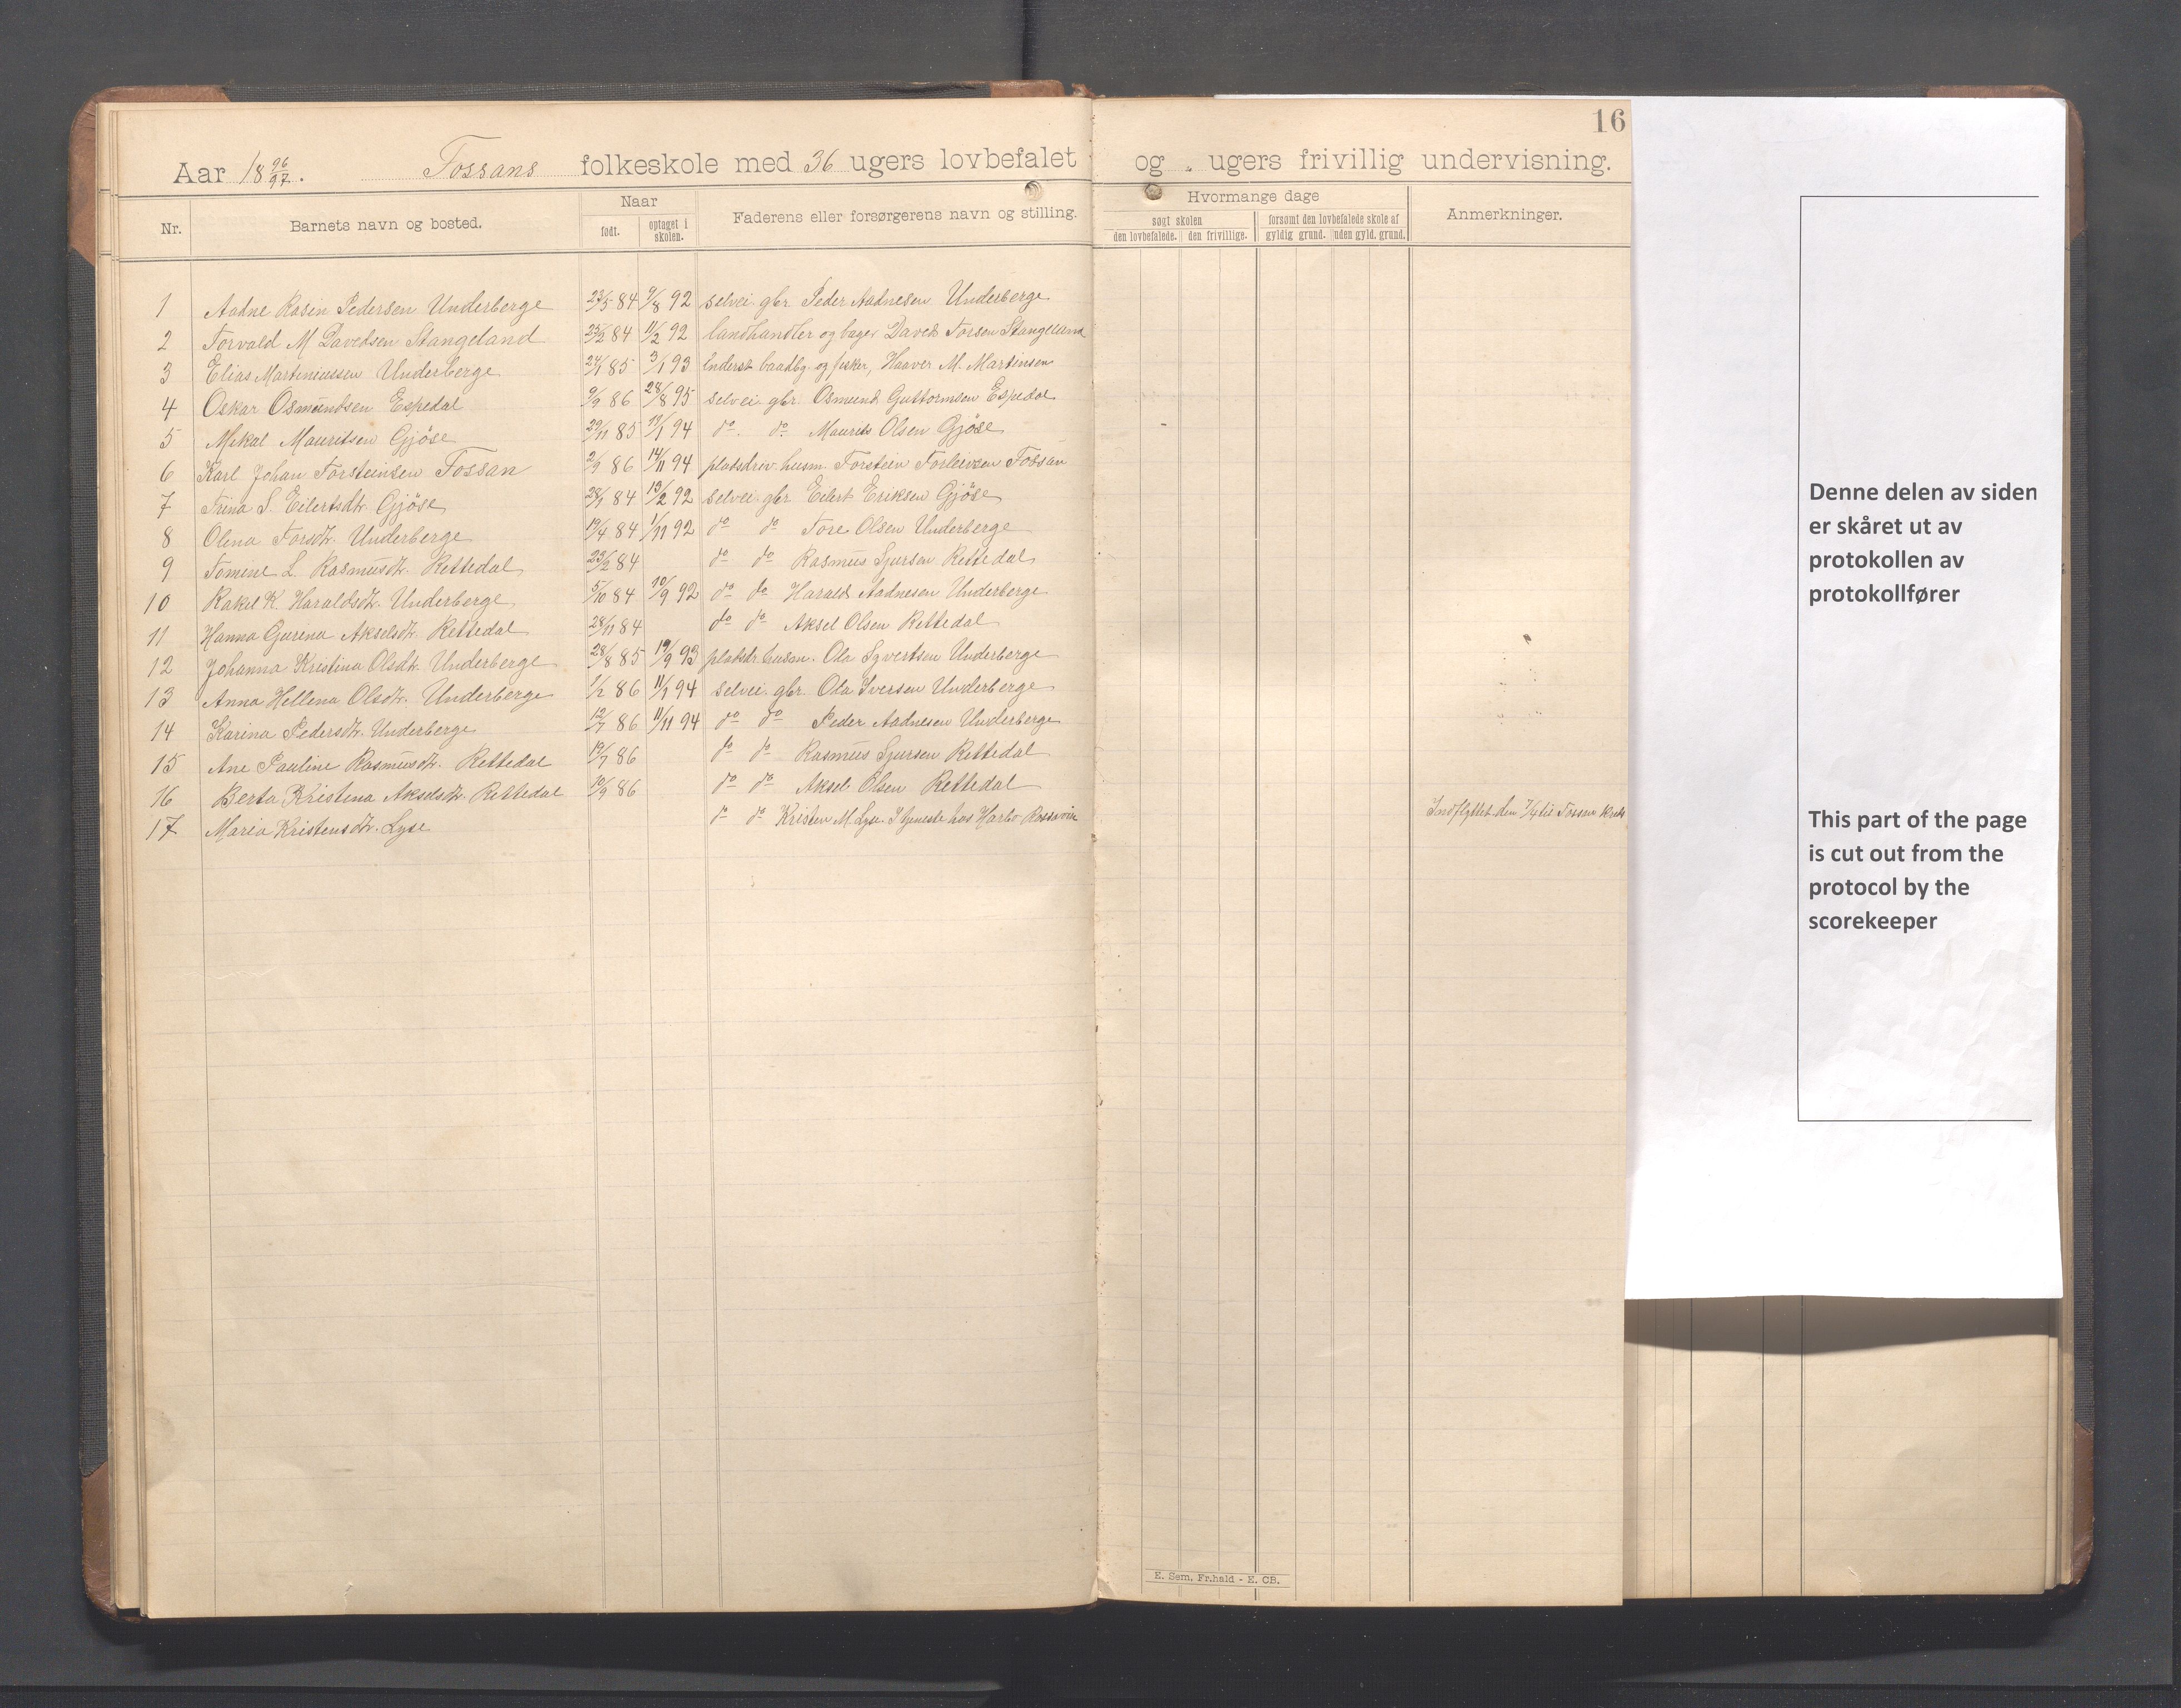 16
Aar 18 96/97. Fossans folkeskole med 36 ugers lovbefalet og . ugers frivillig undervisning.
Nr. Barnets navn og bosted. Naar Faderens eller forsørgerens navn og stilling. Hvormange dage Anmerkninger.
født. optaget i skolen. søgt skolen forsømt den lovbefalede skole af
den lovbefalede. den frivillige. gyldig grund. uden gyld. grund.
1 Aadne Rasin Pedersen Underberge 23/5 84 9/8 92 selvei. gbr. Peder Aadnesen Underberge
2 Torvald M Davedsen Stangeland 25/2 84 11/2 92 landhandler og bager Daved Torsen Stangeland
3 Elias Martiniussen Underberge 24/1 85 3/1 93 Inderst baadbg. og fisker, Haaver M. Martinsen
4 Oskar Osmundsen Espedal 9/9 86 28/8 95 selvei. gbr. Osmund Guttormsen Espedal
5 Mikal Mauritsen Gjöse 29/11 85 11/1 94 do. do. Maurits Olsen Gjöse
6 Karl Johan Torsteinsen Fossan 2/9 86 14/11 94 pladsdriv. husm. Torstein Torleivsen Fossan
7 Trina S. Eilertsdtr. Gjöse 28/1 84 13/2 92 selvei. gbr. Eilert Eriksen Gjöse
8 Olena Torsdtr. Underberge 19/4 84 1/11 92 do do Tore Olsen Underberge
9 Tomene L. Rasmusdtr. Rettedal 23/2 84 do do Rasmus Sjursen Rettedal
10 Rakel K. Haraldsdtr. Underberge 5/10 84 10/9 92 do do Harald Aadnesen Underberge
11 Hanna Gurina Akselsdtr. Rettedal 28/11 84 do do Aksel Olsen Rettedal
12 Johanna Kristina Olsdtr. Underberge 28/8 85 19/9 93 pladsdr. husm. Ola Syvertsen Underberge
13 Anna Hellena Olsdtr. Underberge 1/2 86 11/1 94 selvei. gbr. Ola Iversen Underberge
14 Karina Pedersdtr. Underberge 12/7 86 11/11 94 do do Peder Aadnesen Underberge
15 Ane Pauline Rasmusdtr. Rettedal 19/7 86 do do Rasmus Sjursen Rettedal
16 Berta Kristina Akselsdtr. Rettedal 10/9 86 do do Aksel Olsen Rettedal
17 Maria Kristensdtr. Lyse do do Kristen M. Lyse. I tjeneste hos Harbo Rossavik Indflyttet den 7/4 til Fossan Kreds
E. Sem, Fr.hald - E. CB.
Denne delen av siden
er skåret ut av
protokollen av
protokollfører
This part of the page
is cut out from the
protocol by the
scorekeeper